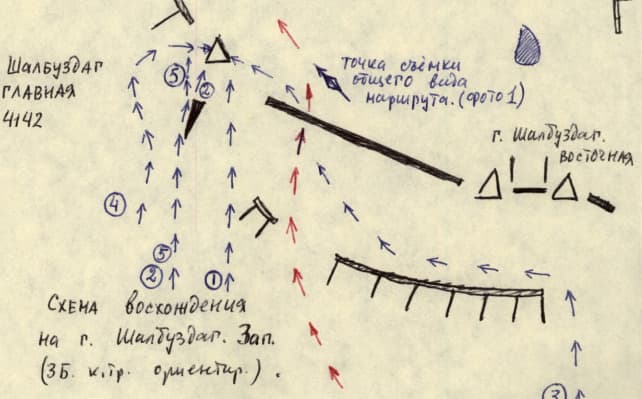 Шалбуздаг
главная
4142
точка съёмки
общего вида
маршрута. (фото 1)
г. Шалбуздаг.
восточная
5
2
4
5
2
1
Схема восхождения
на г. Шалбуздаг. Зап.
(3Б. к.тр. ориентир.).
3